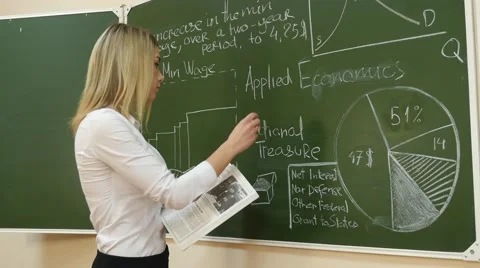 increase in the min
age, over a two-year
period, to 4,25$
Min Wage
S
D
Q
Applied Economics
tional
Treasure
51%
14
47$
Net Interest
Nor Defense
Other Federal
Grant to States